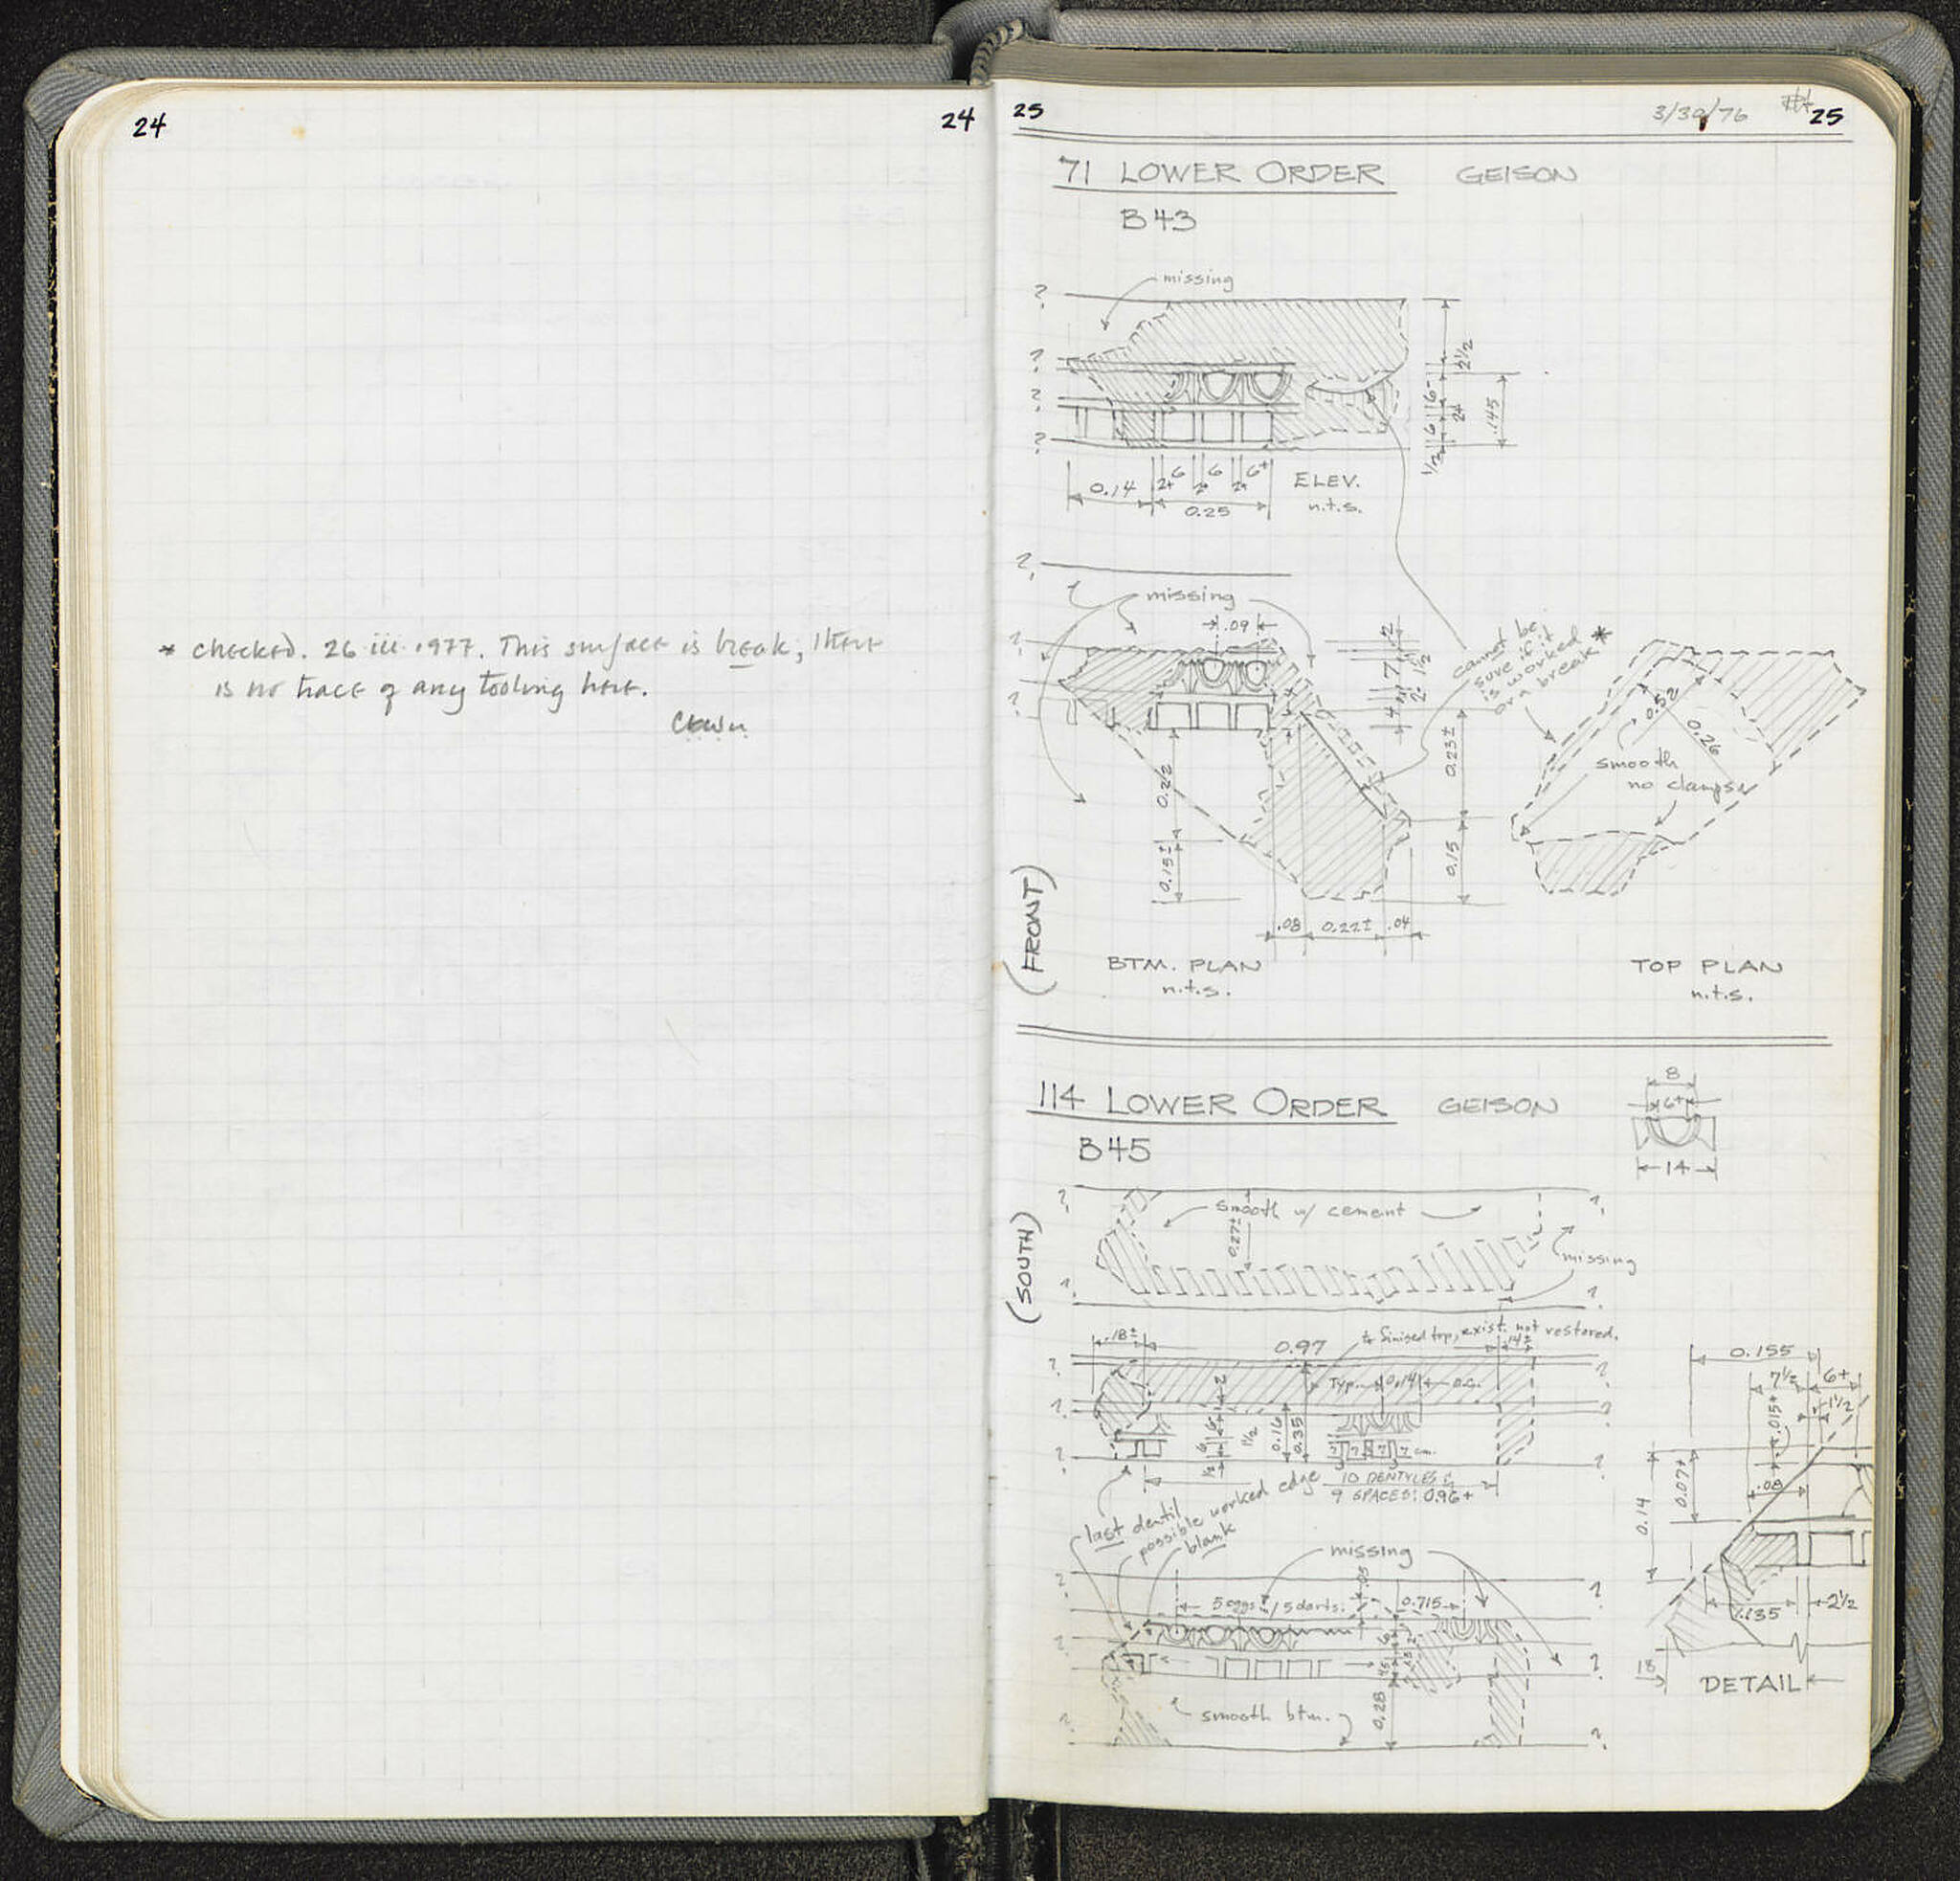 24
24
* checked. 26 iii 1977. This surface is break; there
is no trace of any tooling here.
25
3/30/76
25
71 LOWER ORDER GEISON
B43
missing
?
?
?
?
2 1/2
6-
2+
6
1/2
.145
0.14
2+ 6
2+ 6
2+ 6+
0.25
ELEV.
n.t.s.
?
missing
.09
?
?
2
7
1 1/2
2-
4
cannot be
sure if it
is worked
or a break *
0.52
0.26
smooth
no clamps
0.22
0.15±
0.23±
0.15
.08
0.22±
.04
(FRONT)
BTM. PLAN
n.t.s.
TOP PLAN
n.t.s.
114 LOWER ORDER GEISON
B45
8
6+
14
(SOUTH)
?
?
smooth w/ cement
0.27±
missing
?
?
.18±
0.97
to finised top, exist. not restored.
.14±
?
?
Typ.
0.14
o.c.
2
6+
6
1 1/2
1/2
0.16
0.35
?
?
7 7 7 7 cm.
?
?
10 DENTYLES &
9 SPACES: 0.96+
last dentil
possible worked edge
blank
missing
?
?
5 eggs / 5 darts.
.05
0.715
?
?
6
0.28
smooth btm.
?
?
0.155
7 1/2
6+
1 1/2
.015+
.08
0.07+
0.14
.135
2 1/2
18
DETAIL